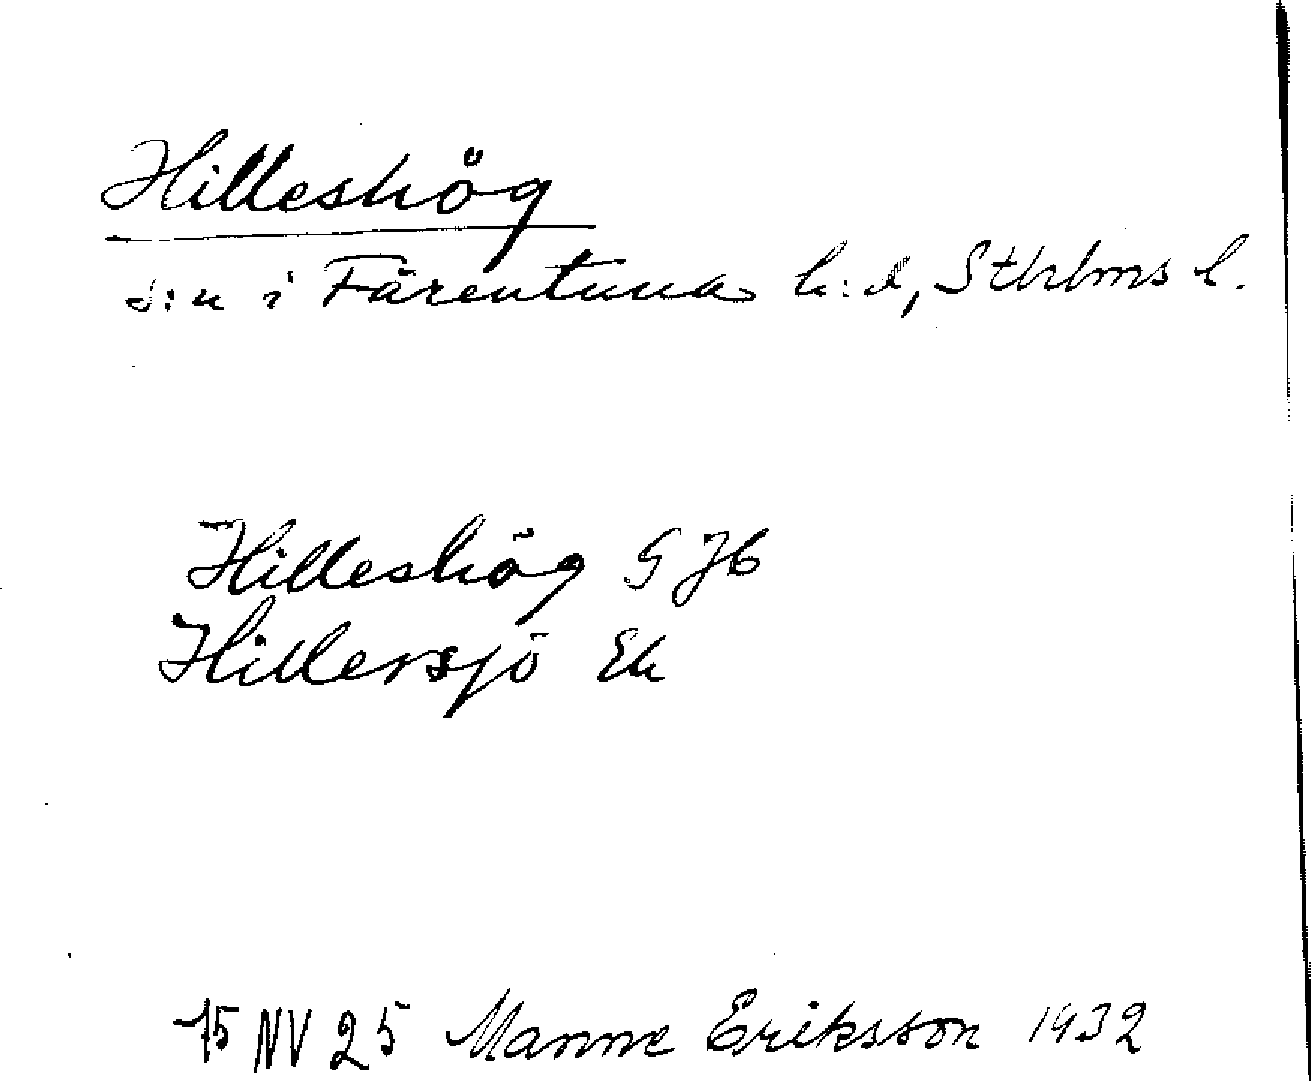 Hilleshög
s:n i Färentuna h:d, Sthlms l.
Hilleshög GJb
Hillersjö Ek
75 NV 25 Manne Eriksson 1932